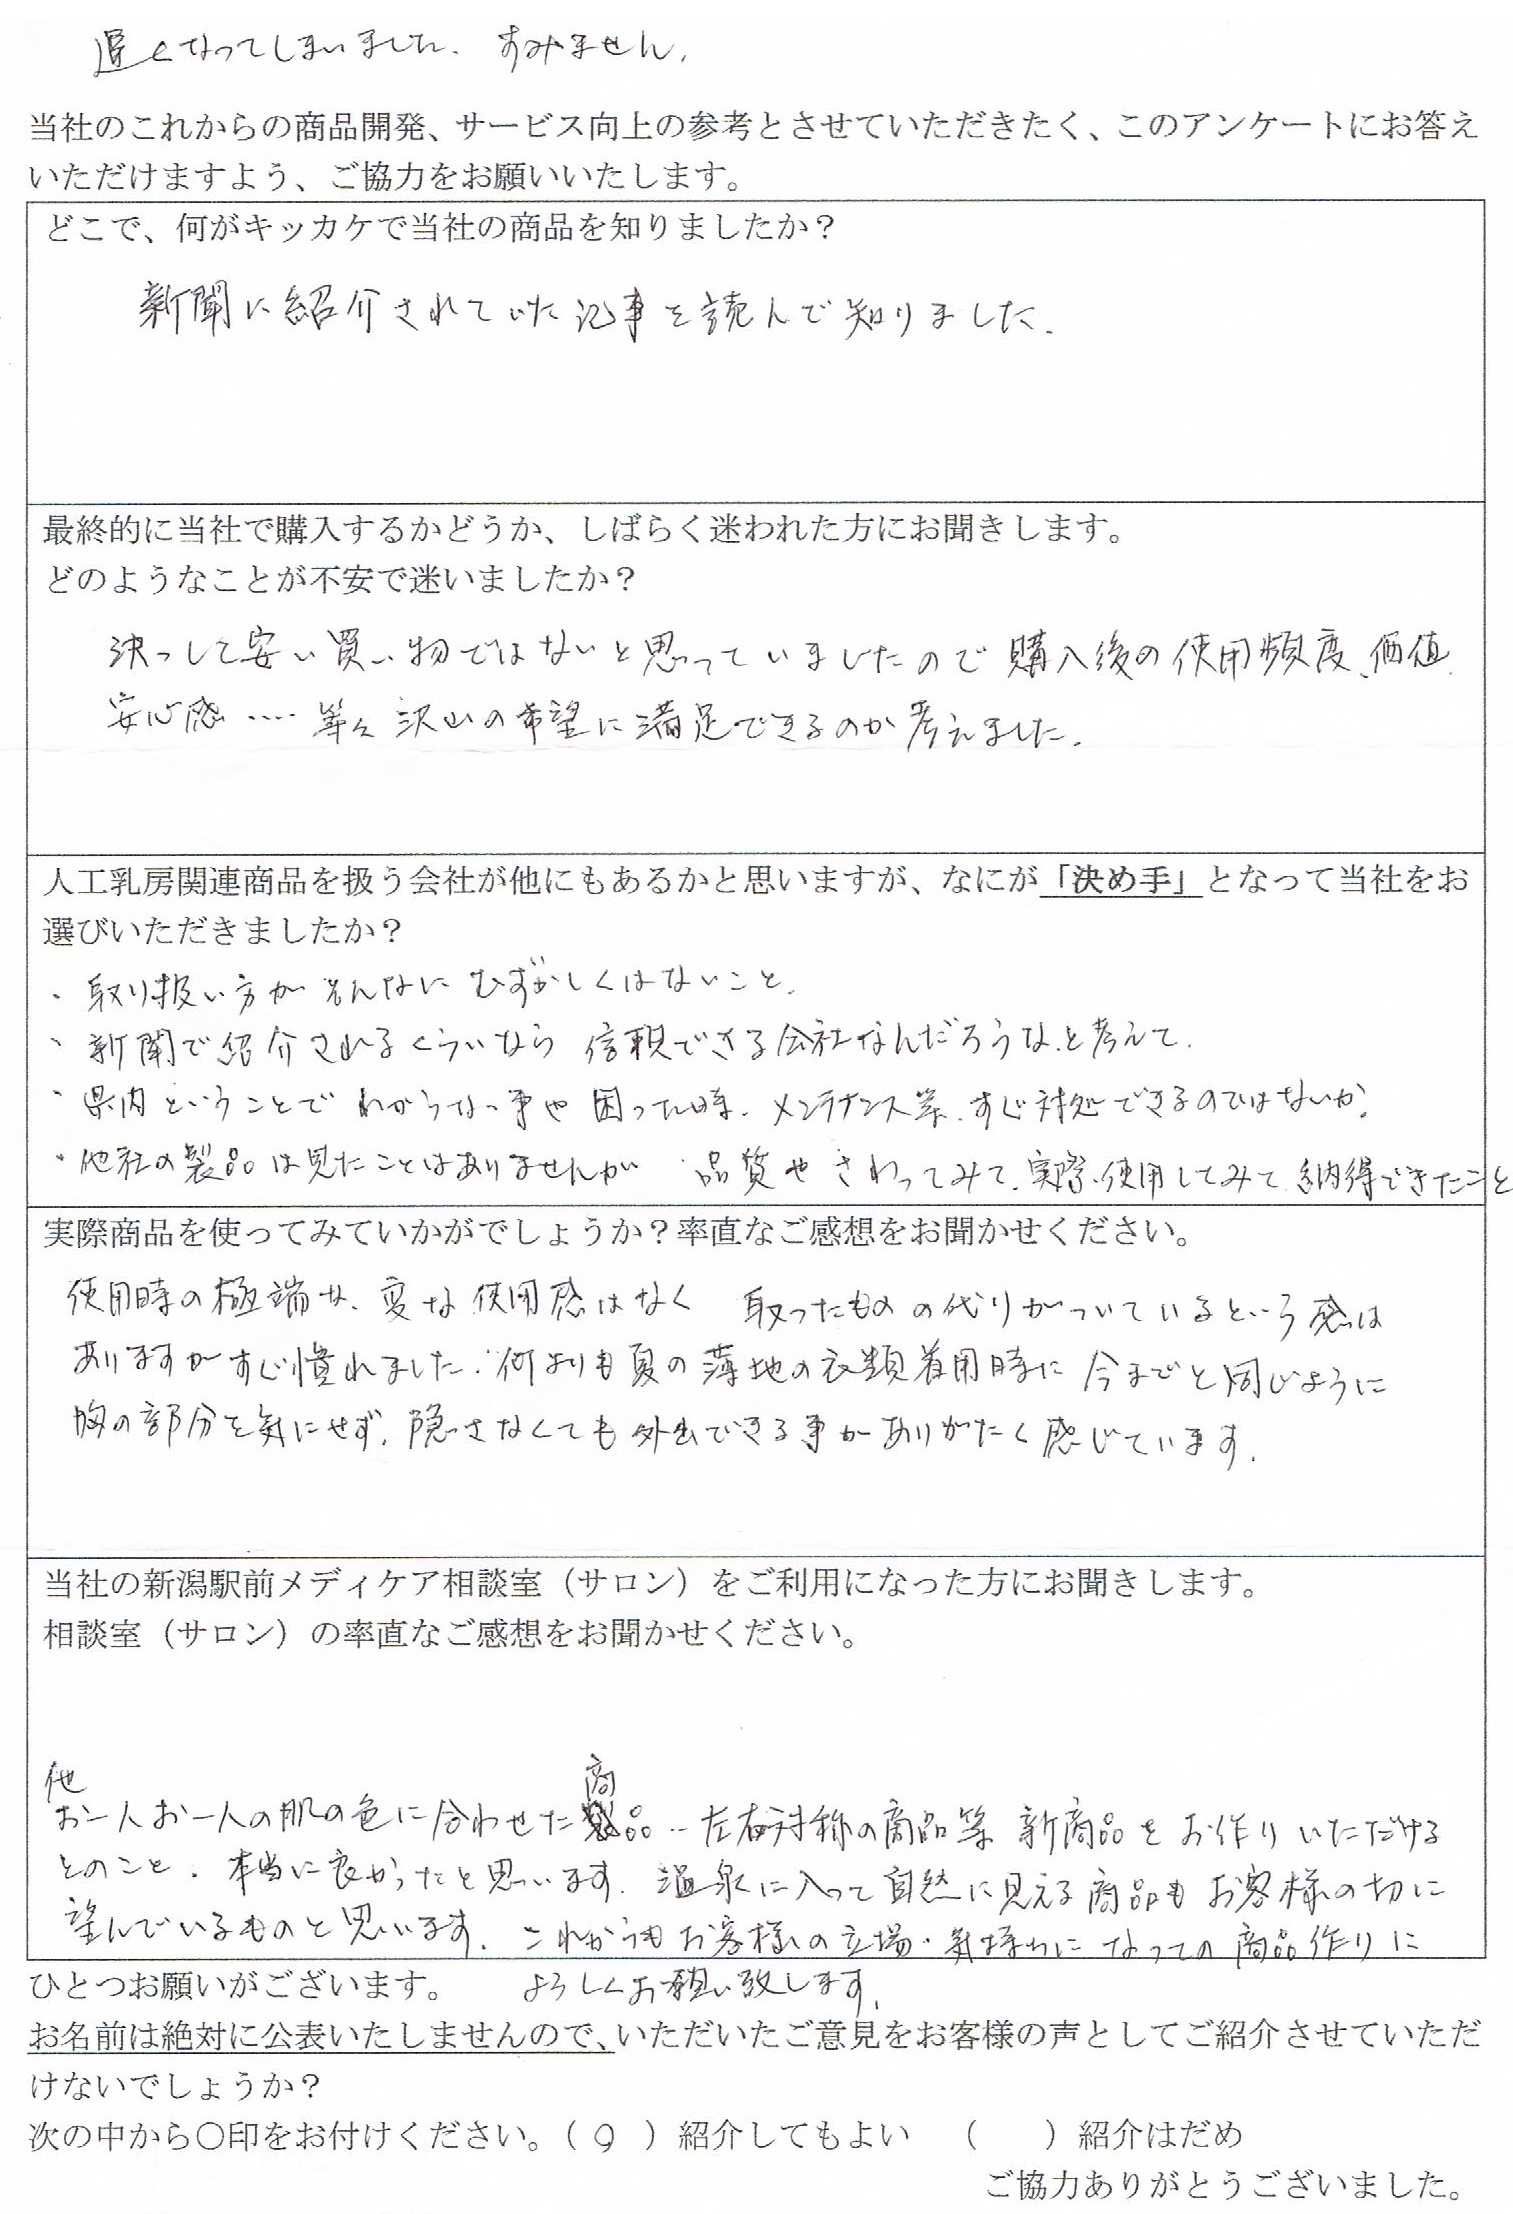 遅くなってしまいました。すみません。
当社のこれからの商品開発、サービス向上の参考とさせていただきたく、このアンケートにお答え
いただけますよう、ご協力をお願いいたします。
どこで、何がキッカケで当社の商品を知りましたか？
新聞に紹介されていた記事を読んで知りました。
最終的に当社で購入するかどうか、しばらく迷われた方にお聞きします。
どのようなことが不安で迷いましたか？
決っして安い買い物ではないと思っていましたので購入後の使用頻度、価値、
安心感‥‥等々沢山の希望に満足できるのか考えました。
人工乳房関連商品を扱う会社が他にもあるかと思いますが、なにが「決め手」となって当社をお
選びいただきましたか？
・取り扱い方がそんなにむずかしくはないこと。
・新聞で紹介されるくらいなら信頼できる会社なんだろうな、と考えて。
・県内ということでわからない事や困った時、メンテナンス等、すぐ対処できるのではないか。
・他社の製品は見たことはありませんが 品質やさわってみて、実際、使用してみて、納得できたこと
実際商品を使ってみていかがでしょうか？率直なご感想をお聞かせください。
使用時の極端な、変な使用感はなく 取ったものの代りがついているという感は
ありますがすぐ慣れました。何よりも夏の薄地の衣類着用時に今までと同じように
胸の部分を気にせず、隠さなくても外出できる事がありがたく感じています。
当社の新潟駅前メディケア相談室（サロン）をご利用になった方にお聞きします。
相談室（サロン）の率直なご感想をお聞かせください。
他 商
お一人お一人の肌の色に合わせた品‥左右対称の商品等 新商品をお作りいただける
とのこと、本当に良かったと思います。温泉に入って自然に見える商品もお客様の切に
望んでいるものと思います。これからもお客様の立場・気持ちになっての商品作りに
ひとつお願いがございます。 よろしくお願い致します。
お名前は絶対に公表いたしませんので、いただいたご意見をお客様の声としてご紹介させていただ
けないでしょうか？
次の中から〇印をお付けください。（ ○ ）紹介してもよい （ ）紹介はだめ
ご協力ありがとうございました。